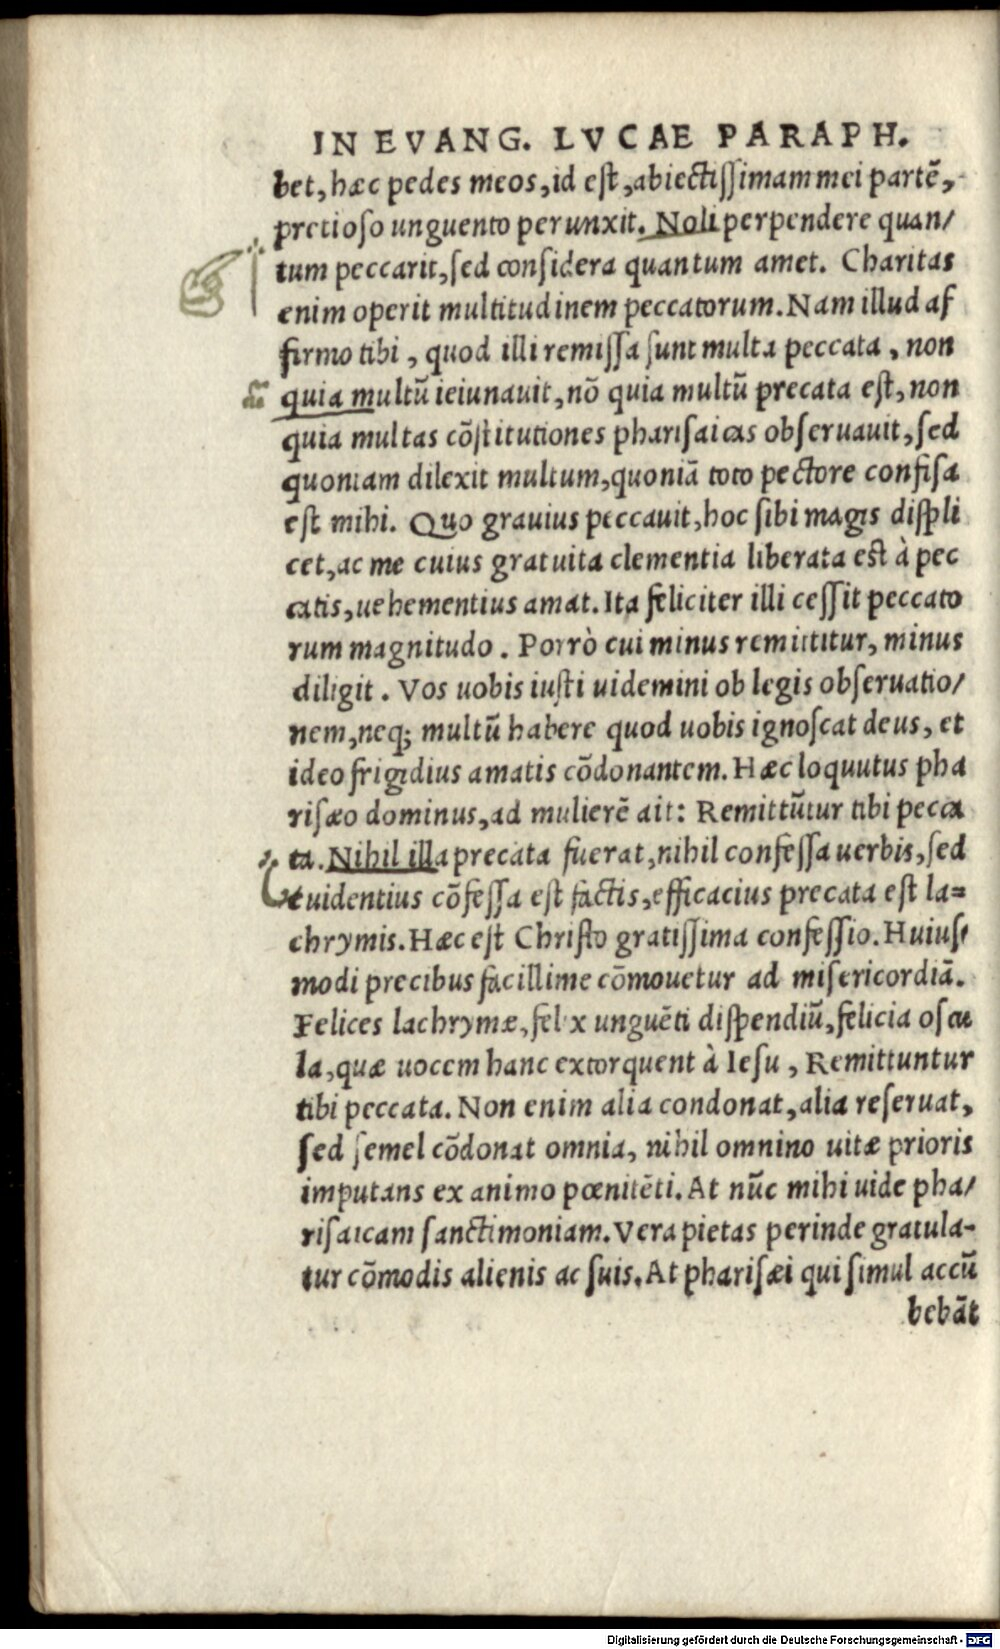 IN EVANG. LVCAE PARAPH.
bet, hæc pedes meos, id est, abiectissimam mei partē,
pretioso unguento perunxit. Noli perpendere quan/
tum peccarit, sed considera quantum amet. Charitas
enim operit multitudinem peccatorum. Nam illud af
firmo tibi, quod illi remissa sunt multa peccata, non
quia multū ieiunauit, nō quia multū precata est, non
quia multas cōstitutiones pharisaicas obseruauit, sed
quoniam dilexit multum, quoniā toto pectore confisa
est mihi. Quo grauius peccauit, hoc sibi magis displi
cet, ac me cuius gratuita clementia liberata est à pec
catis, uehementius amat. Ita feliciter illi cessit peccato
rum magnitudo. Porrò cui minus remittitur, minus
diligit. Vos uobis iusti uidemini ob legis obseruatio/
nem, neq; multū habere quod uobis ignoscat deus, et
ideo frigidius amatis cōdonantem. Hæc loquutus pha
risæo dominus, ad mulierē ait: Remittūtur tibi pecca
ta. Nihil illa precata fuerat, nihil confessa uerbis, sed
euidentius cōfessa est factis, efficacius precata est la=
chrymis. Hæc est Christo gratissima confessio. Huius/
modi precibus facillime cōmouetur ad misericordiā.
Felices lachrymæ, felix unguēti dispendiū, felicia oscu
la, quæ uocem hanc extorquent à Iesu, Remittuntur
tibi peccata. Non enim alia condonat, alia reseruat,
sed semel cōdonat omnia, nihil omnino uitæ prioris
imputans ex animo pœnitēti. At nūc mihi uide pha/
risaicam sanctimoniam. Vera pietas perinde gratula-
tur cōmodis alienis ac suis. At pharisæi qui simul accū
bebāt
Digitalisierung gefördert durch die Deutsche Forschungsgemeinschaft - DFG